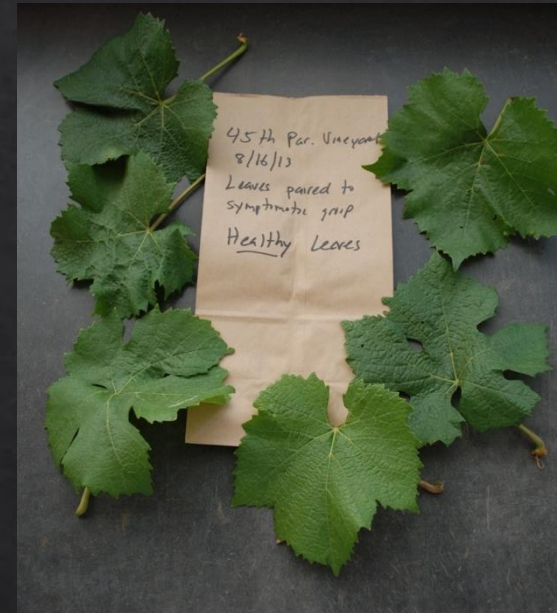 45th Par. Vineyard
8/16/13
Leaves paired to
symptomatic group
Healthy Leaves